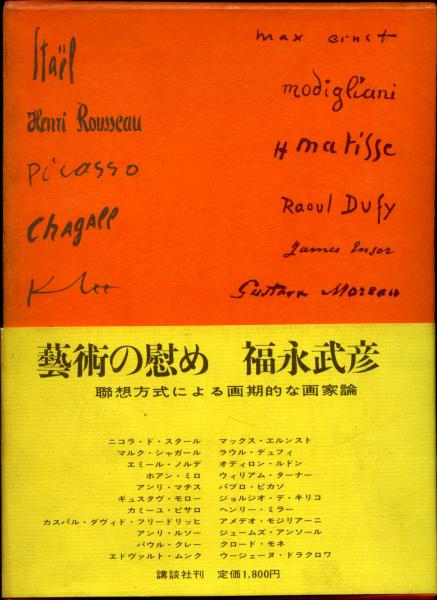 Staël
Henri Rousseau
Picasso
Chagall
Klee
max ernst
modigliani
H matisse
Raoul Dufy
James Ensor
Gustave Moreau
藝術の慰め 福永武彦
聯想方式による画期的な画家論
ニコラ・ド・スタール
マルク・シャガール
エミール・ノルデ
ホアン・ミロ
アンリ・マチス
ギュスタヴ・モロー
カミーユ・ピサロ
カスパル・ダヴィド・フリードリッヒ
アンリ・ルソー
パウル・クレー
エドヴァルト・ムンク
マックス・エルンスト
ラウル・デュフィ
オディロン・ルドン
ウィリアム・ターナー
パブロ・ピカソ
ジョルジオ・デ・キリコ
ヘンリー・ミラー
アメデオ・モジリアーニ
ジェームズ・アンソール
クロード・モネ
ウージェーヌ・ドラクロワ
講談社刊 定価1,800円